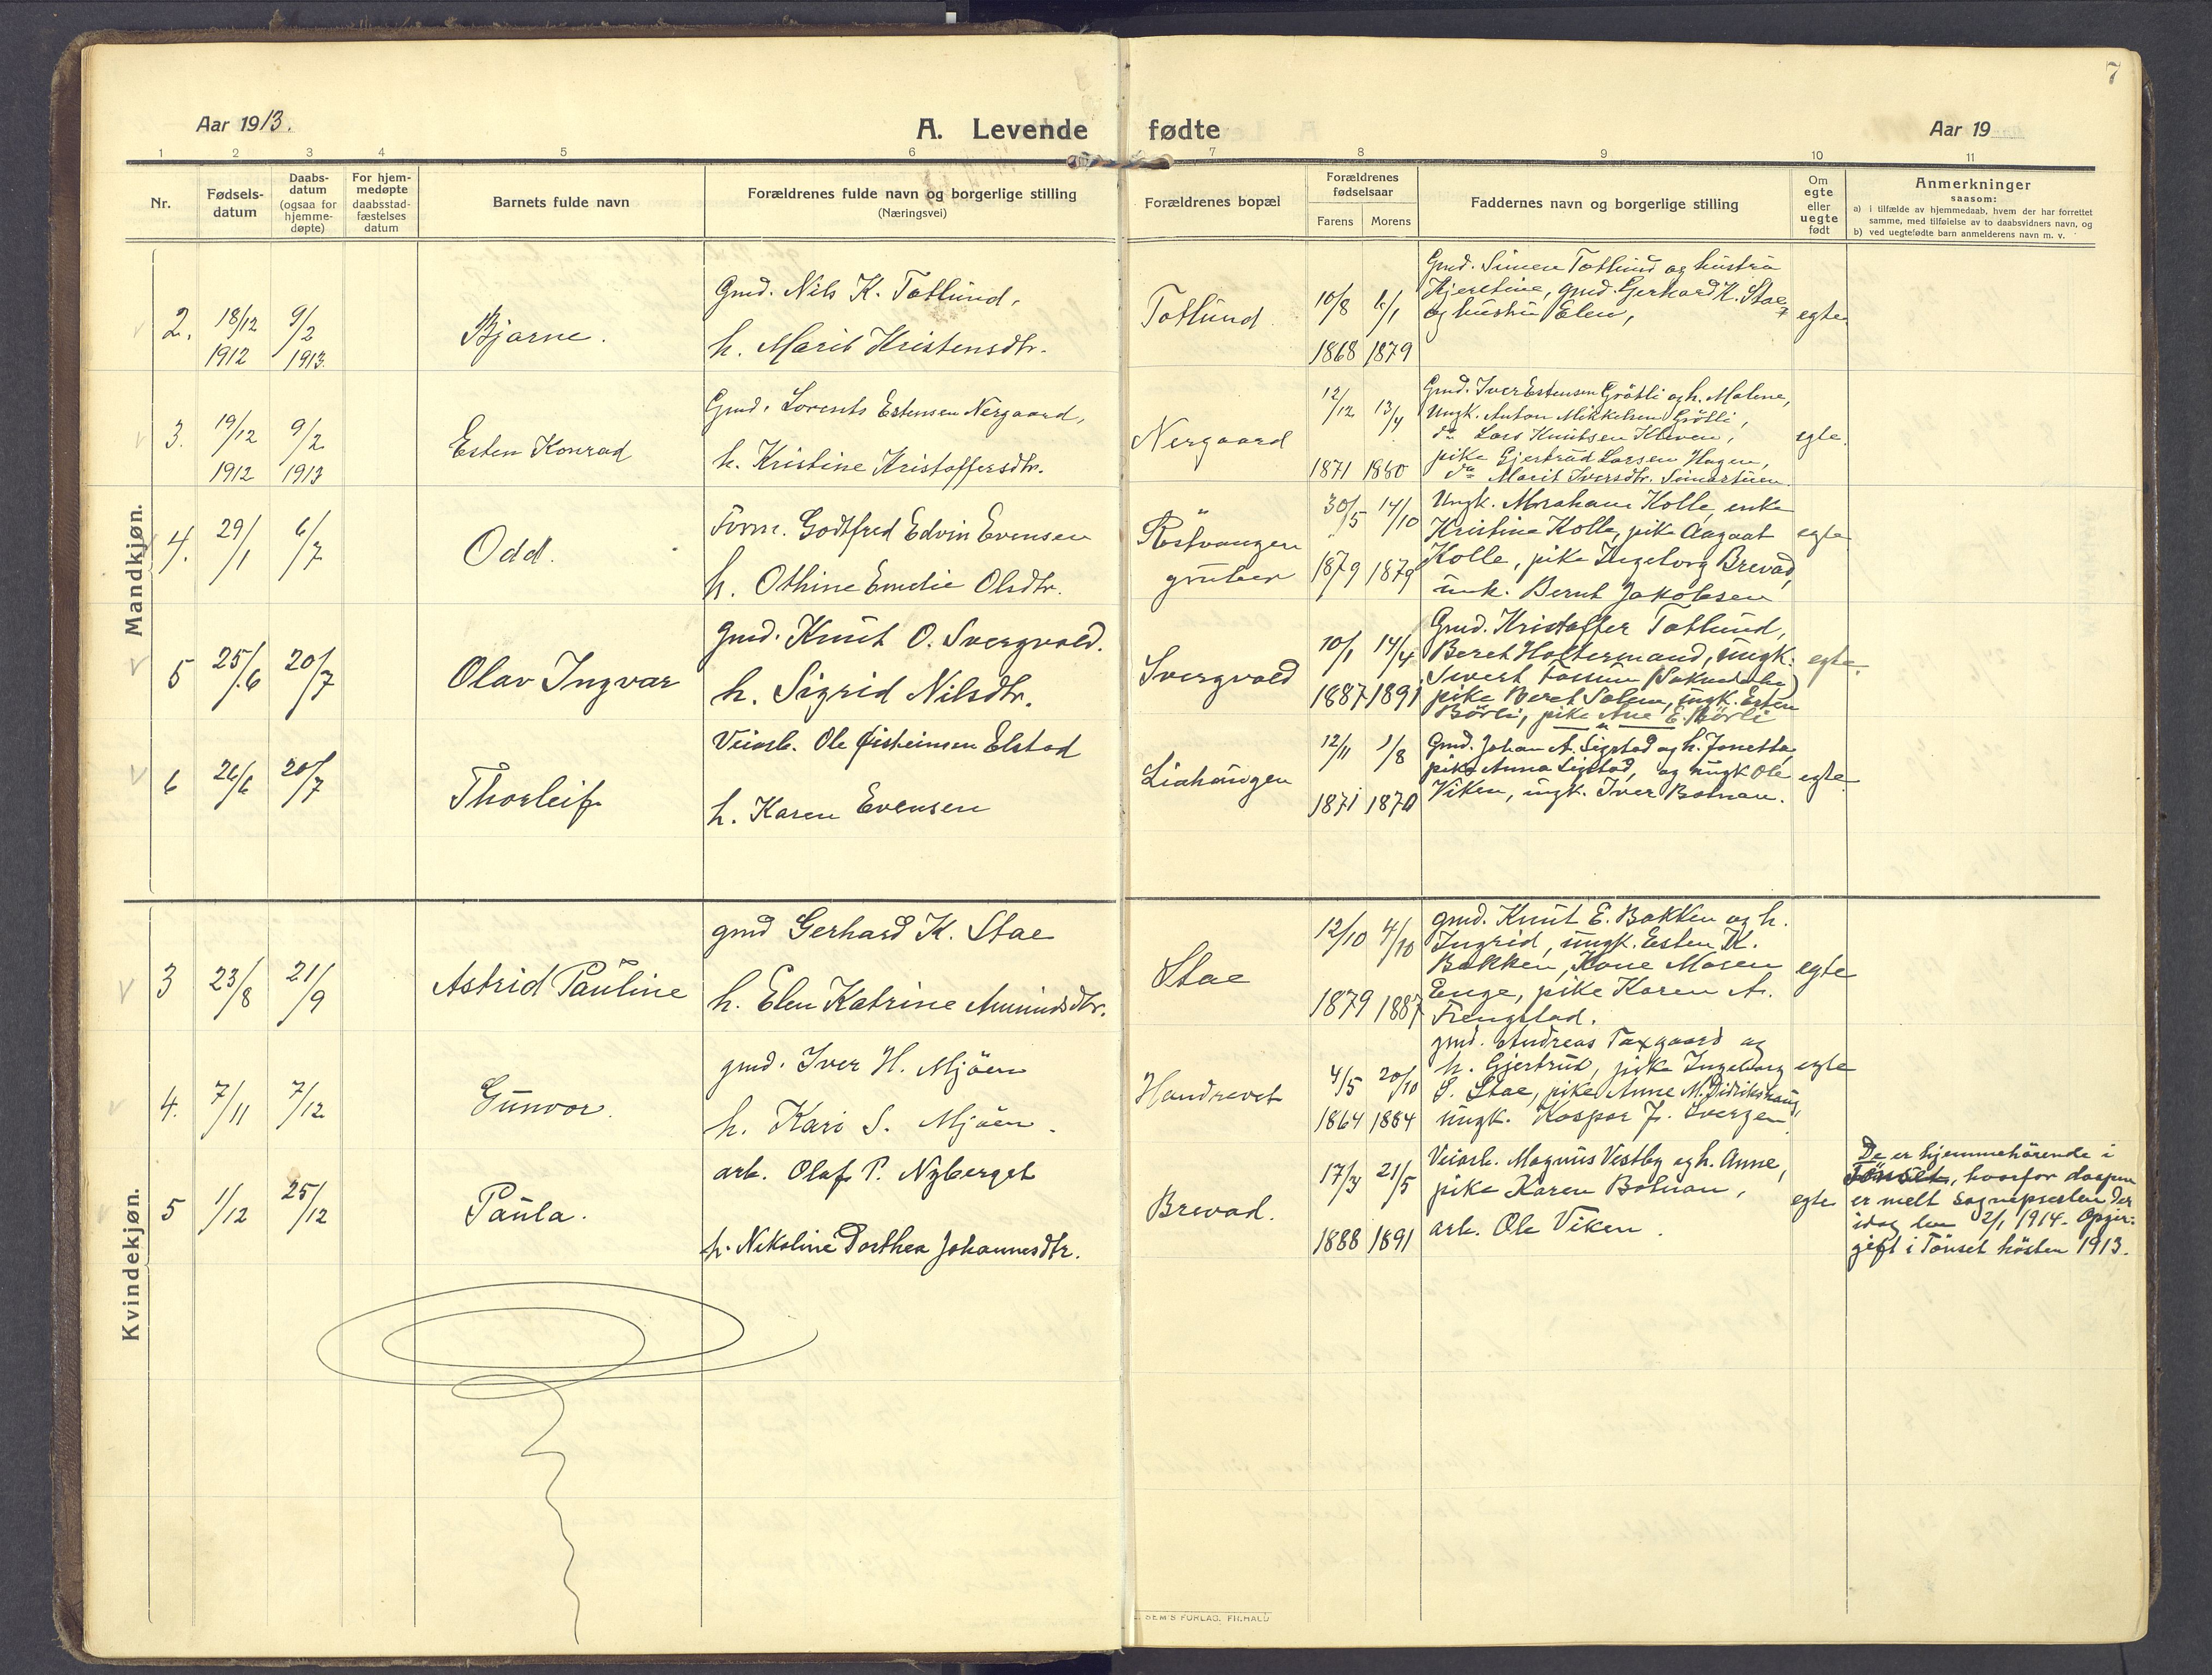 7
Aar 1913.
A. Levende fødte
Aar 19
1 2 3 4 5 6 7 8 9 10 11
Nr.
Fødsels-
datum
Daabs-
datum
(ogsaa for
hjemme-
døpte)
For hjem-
medøpte
daabsstad-
fæstelses
datum
Barnets fulde navn
Forældrenes fulde navn og borgerlige stilling
(Næringsvei)
Forældrenes bopæl
Forældrenes
fødselsaar
Farens Morens
Faddernes navn og borgerlige stilling
Om
egte
eller
uegte
født
Anmerkninger
saasom:
a) i tilfælde av hjemmedaab, hvem der har forrettet
samme, med tilføielse av to daabsvidners navn, og
b) ved uegtefødte barn anmelderens navn m. v.
Mandkjøn.
2. 18/12 1912 9/2 1913.
Bjarne.
Gmd. Nils K. Totlund,
h. Marit Kristensdtr.
Totlund
10/8 1868 6/1 1879
Gmd. Simen Totlund og hustru
Kjerstine, gmd. Gerhard K. Stae
og hustru Elen,
egte
3. 19/12 1912 9/2 1913
Esten Konrad
Gmd. Lorents Estensen Nergaard,
h. Kristine Kristoffersdtr.
Nergaard
12/12 1871 13/4 1880
Gmd. Iver Estensen Grøtli og h. Malene,
Ungk. Anton Mikkelsen Grøtli,
do Lars Knutsen Kleven,
pike Gjertrud Larsen Hagen,
do Marit Iversdtr.
egte.
4. 29/1 6/7
Odd.
Form. Godtfred Edvin Evensen
h. Othine Emelie Olsdtr.
Röstvangen
gruber
30/5 1879 14/10 1879
Ungk. Abraham Kolle, enke
Kristine Kolle, pike Aagaat
Kolle, pike Ingeborg Brevad,
unk. Bernt Jakobsen
egte
5 25/6 20/7
Olav Ingvar
Gmd. Knut O. Svergvold.
h. Sigrid Nilsdtr.
Svergvold
10/1 1887 14/4 1891
Gmd. Kristoffer Totlund,
Beret Holtermand, ungk.
Sivert Fossum (Soknedalen)
pike Beret Solem, ungk. Esten
Börli, pike Ane E. Börli
egte.
6 26/6 20/7
Thorleif
Veiarb. Ole Øisteinsen Elstad
h. Karen Evensen
Liahaugen
12/11 1871 1/8 1870
Gmd. Johan A. Sigstad og h. Jonetta,
pike Anna Sigstad, og ungk Ole
Viken, ungk. Iver Botnan.
egte
Kvindekjøn.
3 23/8 21/9
Astrid Pauline
gmd Gerhard K. Stae
h. Elen Katrine Amundsdtr.
Stae
12/10 1879 4/10 1887
gmd. Knut E. Bakken og h.
Ingrid, ungk. Esten K.
Bakken, Kone Maren
Enge, pike Karen A.
Frengstad.
egte
4. 7/11 7/12
Gunvor.
gmd. Iver H. Mjöen
h. Kari S. Mjöen.
Handrevet
4/5 1864 20/10 1884
gmd. Andreas Taxgaard og
h. Gjertrud, pike Ingeborg
S. Stae, pike Anne M. Didrikshaug,
ungk. Kaspar J.
egte
5 1/12 25/12
Paula.
arb. Olaf P. Nyberget
h. Nikoline Dorthea Johannesdtr.
Brevad.
17/3 1888 21/5 1891
Veiarb. Magnus Vestby og h. Anne,
pike Karen Botnan,
arb. Ole Viken.
egte
De er hjemmehörende i
Tönset, hvorfor daapen
er melt sognepresten der
idag den 2/1 1914.
gift i Tönset hösten 1913.